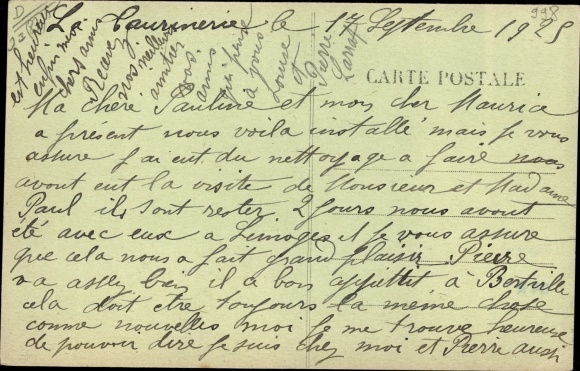 La Taurinerie le 17 Septembre 1925
CARTE POSTALE
Ma chère Pauline et mon cher Maurice
a présent nous voila installé mais je vous
assure j'ai eut du nettoyage a faire nous
avont eut la visite de Monsieur et Madame
Paul ils sont rester 2 jours nous avont
été avec eux a Limoges et je vous assure
que cela nous a fait grand plaisir Pierre
va assez bien il a bon appittit à Bertville
cela doit etre toujours la même chose
comme nouvelles moi je me trouve heureuse
de pouvoir dire je suis chez moi et Pierre aussi
est heureux
enfin mon
chers amis
Recevez
nos meilleurs
amitiez
vos
amis
qui pense
à vous
Louise
et
Pierre